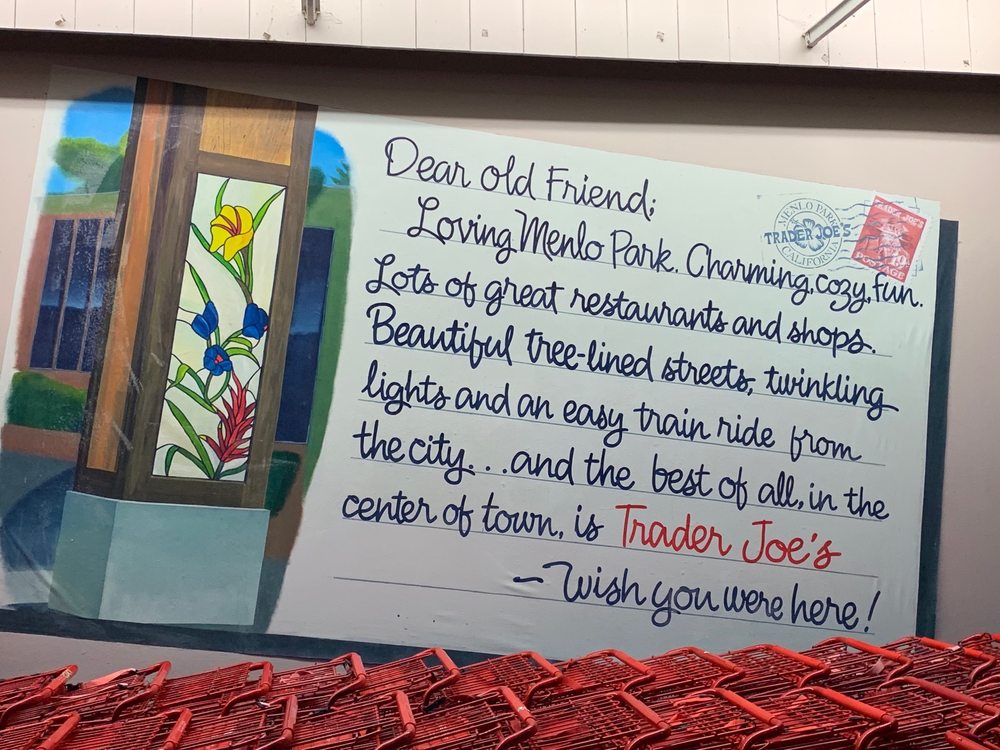 Dear old Friend;
Loving Menlo Park. Charming, cozy, fun.
Lots of great restaurants and shops.
Beautiful tree-lined streets, twinkling
lights and an easy train ride from
the city...and the best of all, in the
center of town, is Trader Joe's
- Wish you were here!
MENLO PARK
TRADER JOE'S
CALIFORNIA
TRADER JOE'S
POSTAGE